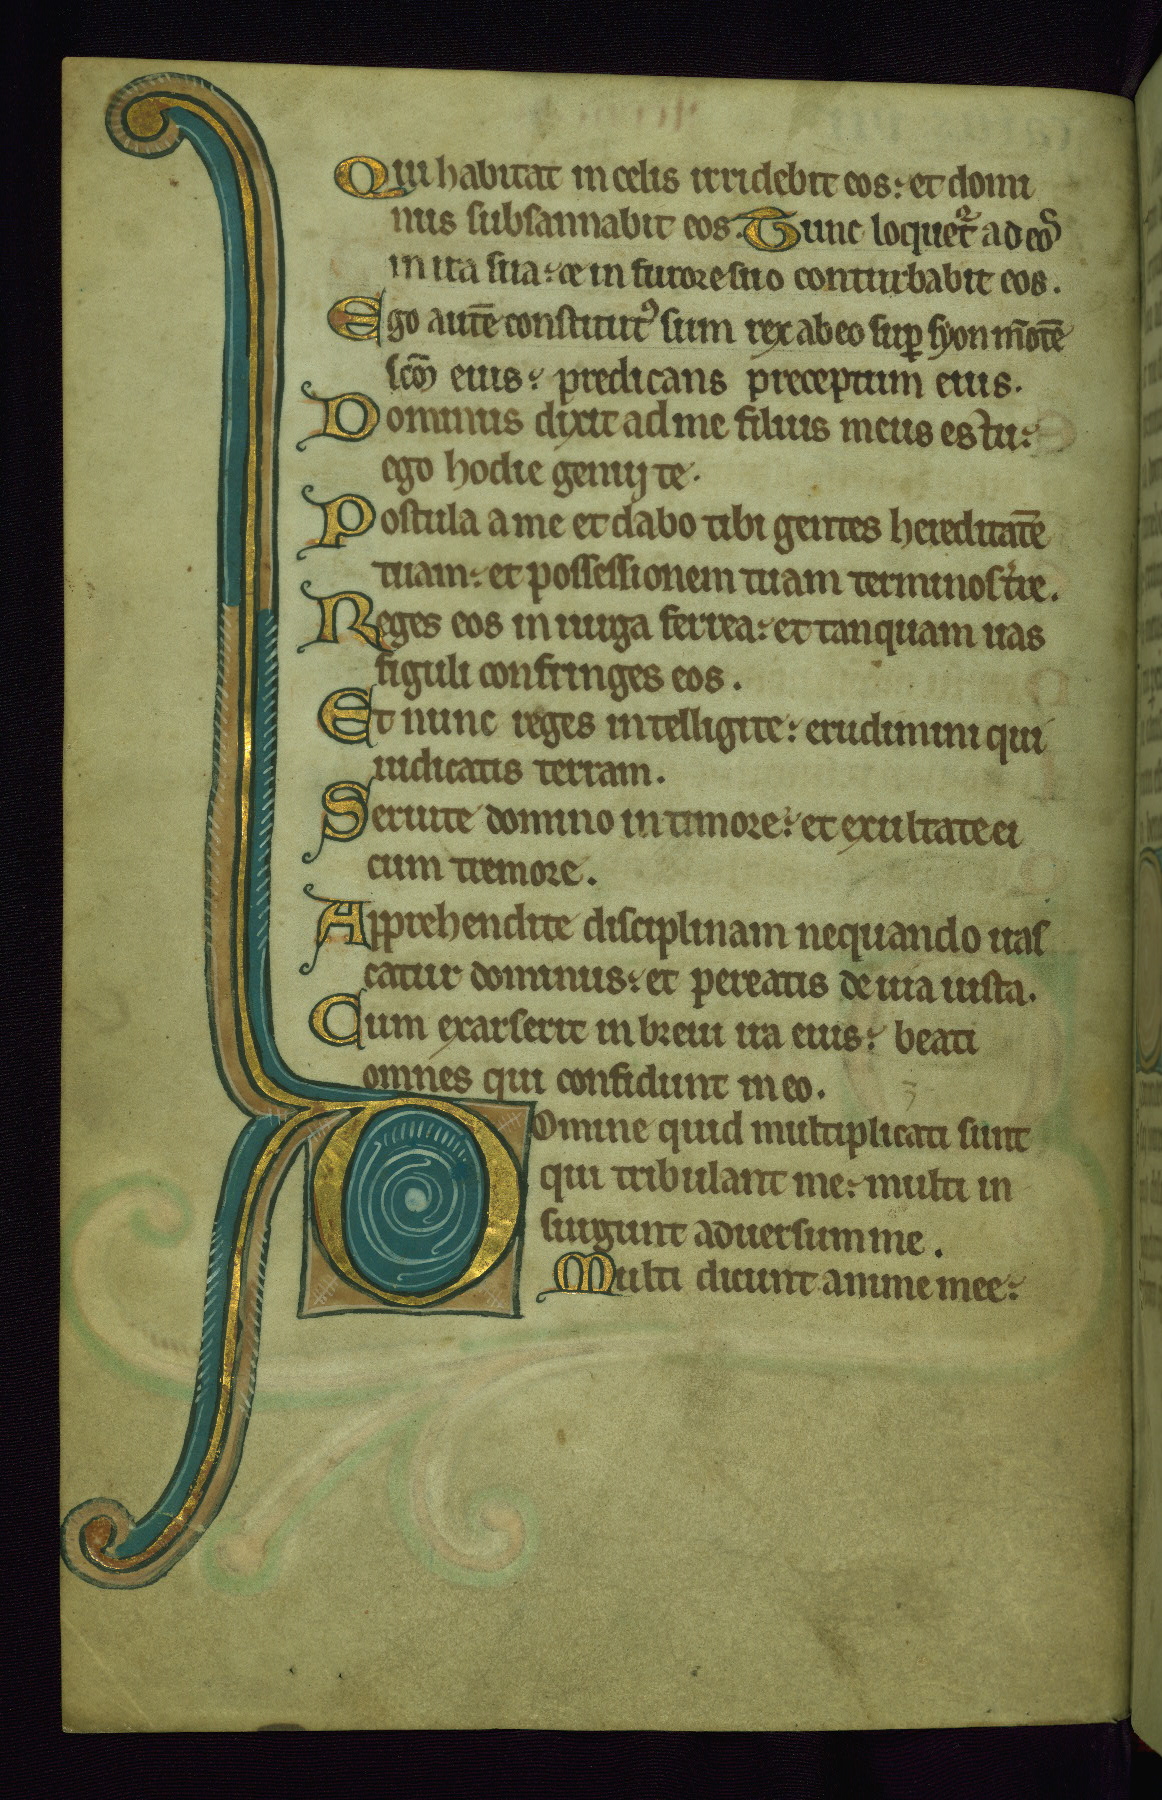 Qui habitat in celis irridebit eos: et domi
nus subsannabit eos. Tunc loquet᷑ ad eos
in ira sua: et in furore suo conturbabit eos.
Ego autē constitutꝰ sum rex ab eo suꝑ syon mōtē
scm̄ eius: predicans preceptum eius.
Dominus dixit ad me filius meus es tu:
ego hodie genui te.
Postula a me et dabo tibi gentes hereditatē
tuam: et possessionem tuam terminos tr̄re.
Reges eos in uirga ferrea: et tanquam uas
figuli confringes eos.
Et nunc reges intelligite: erudimini qui
iudicatis terram.
Seruite domino in timore: et exultate ei
cum tremore.
Apprehendite disciplinam nequando iras
catur dominus: et pereatis de uia iusta.
Cum exarserit in breui ira eius: beati
omnes qui confidunt in eo.
3
Domine quid multiplicati sunt
qui tribulant me: multi in
surgunt aduersum me.
Multi dicunt anime mee: